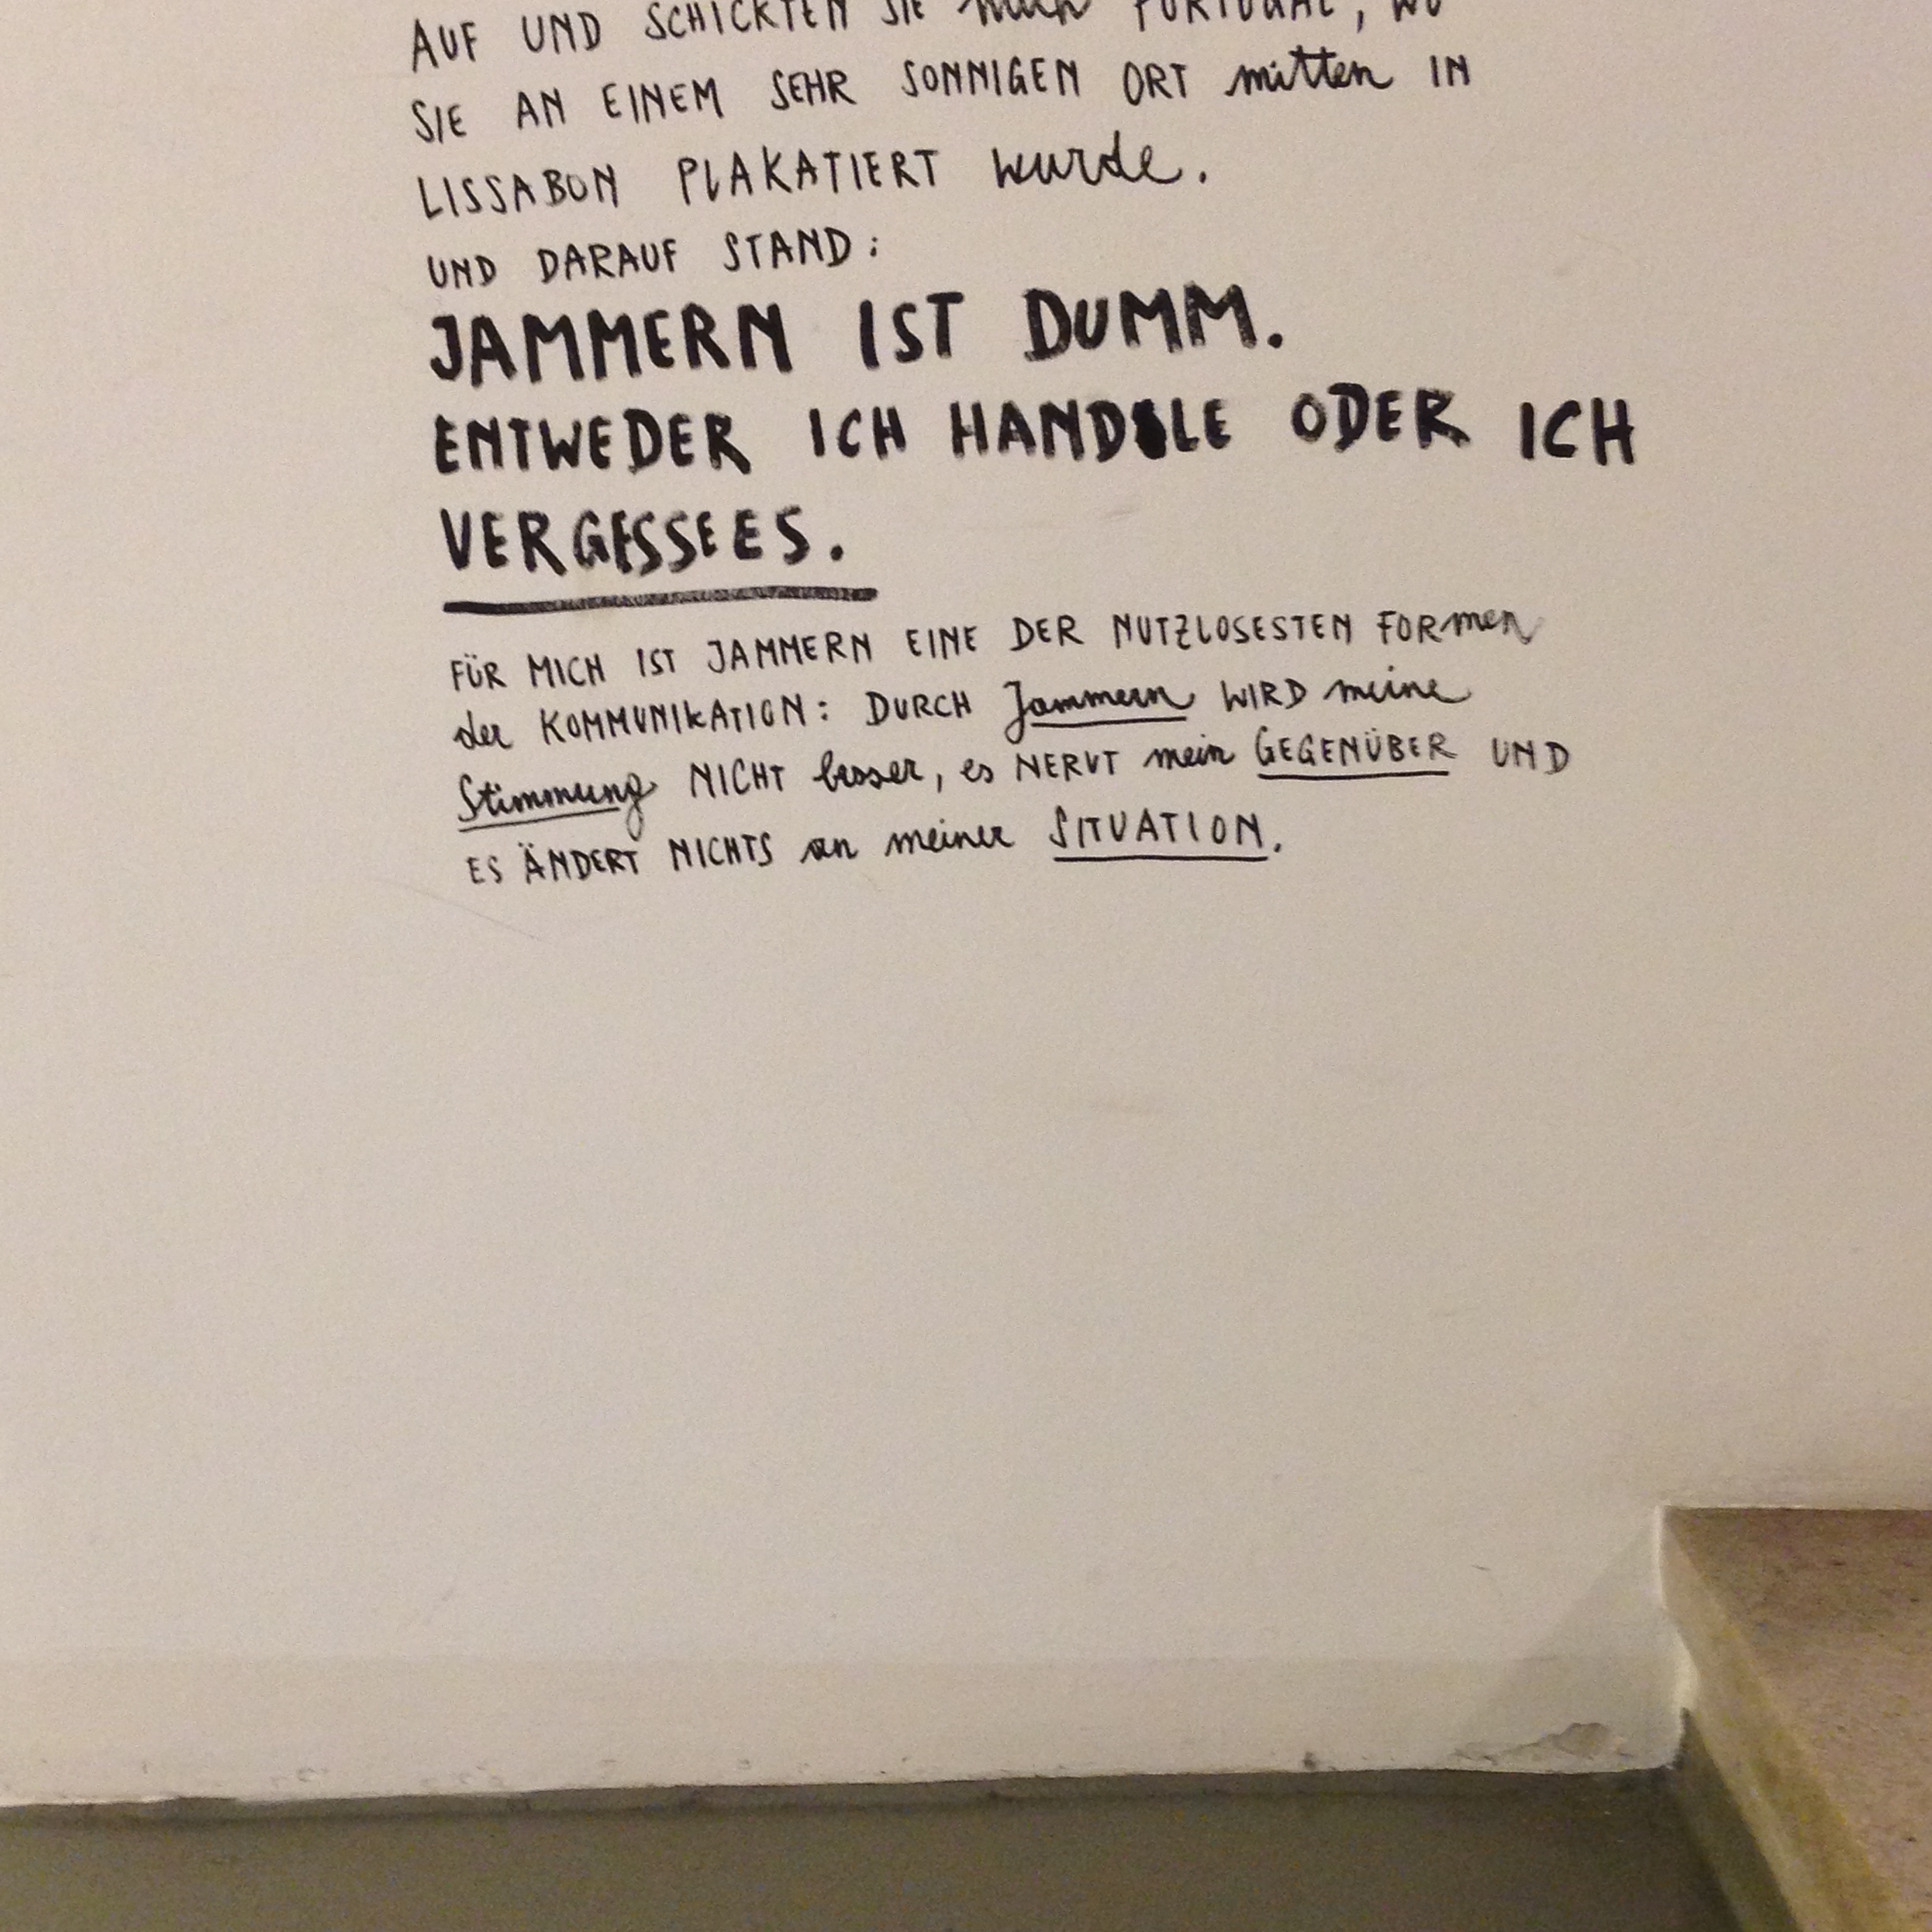 AUF UND SCHICKTEN SIE nach PORTUGAL, WO
SIE AN EINEM SEHR SONNIGEN ORT mitten IN
LISSABON PLAKATIERT wurde.
UND DARAUF STAND:
JAMMERN IST DUMM.
ENTWEDER ICH HANDLE ODER ICH
VERGESSE ES.
FÜR MICH IST JAMMERN EINE DER NUTZLOSESTEN FORmen
der KOMMUNIKATION: DURCH Jammern WIRD meine
Stimmung NICHT besser, es NERVT mein GEGENÜBER UND
ES ÄNDERT NICHTS an meiner SITUATION.